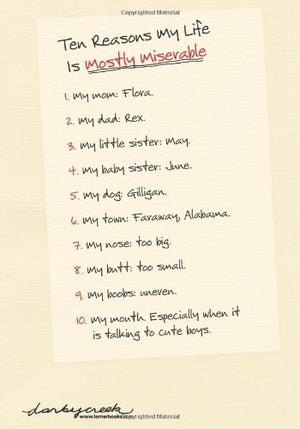 Copyrighted Material
Ten Reasons My Life
Is mostly miserable
1. My mom: Flora.
2. My dad: Rex.
3. My little sister: May.
4. My baby sister: June.
5. My dog: Gilligan.
6. My town: Faraway, Alabama.
7. My nose: too big.
8. My butt: too small.
9. My boobs: uneven.
10. My mouth. Especially when it
is talking to cute boys.
darbycreek
www.lernerbooks.com
Copyrighted Material